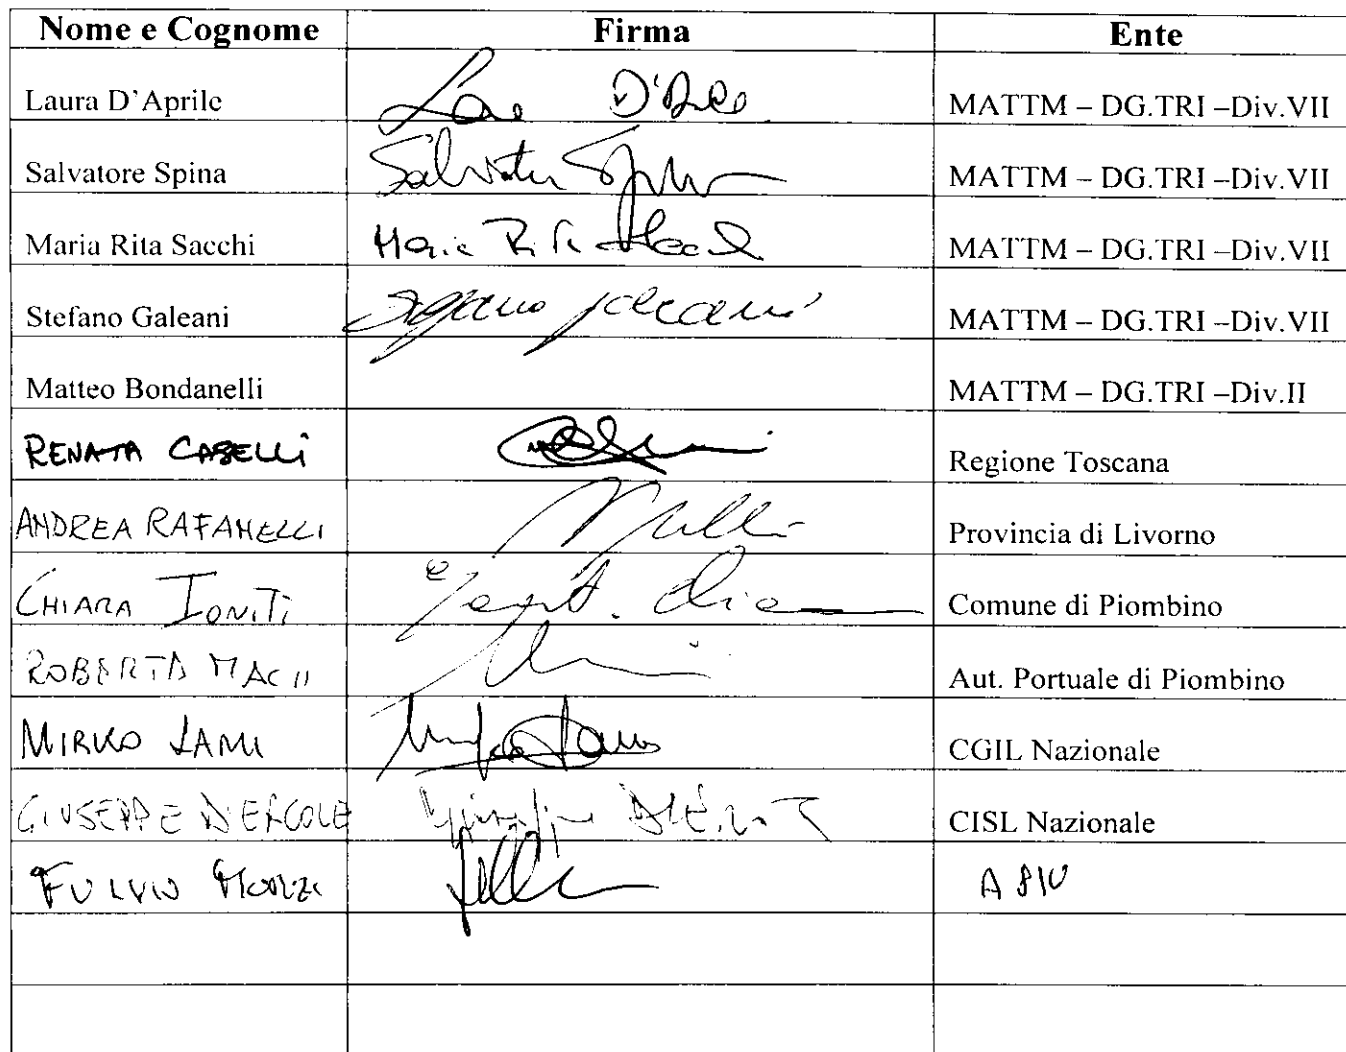 Nome e Cognome Firma Ente
Laura D'Aprile Laura D'Aprile MATTM – DG.TRI –Div.VII
Salvatore Spina Salvatore Spina MATTM – DG.TRI –Div.VII
Maria Rita Sacchi Maria Rita Sacchi MATTM – DG.TRI –Div.VII
Stefano Galeani Stefano Galeani MATTM – DG.TRI –Div.VII
Matteo Bondanelli MATTM – DG.TRI –Div.II
RENATA CASELLI Regione Toscana
ANDREA RAFANELLI Provincia di Livorno
CHIARA Comune di Piombino
ROBERTA MACII Aut. Portuale di Piombino
MIRKO LAMI CGIL Nazionale
GIUSEPPE D'ERCOLE CISL Nazionale
FULVIO